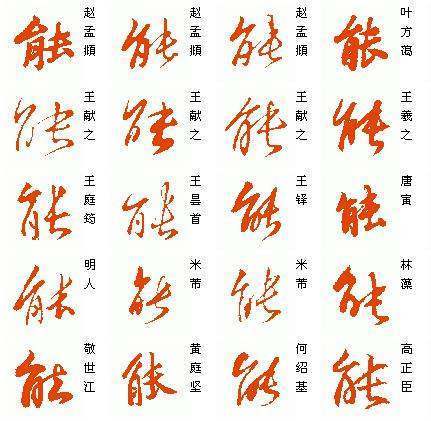 能
赵孟頫
能
赵孟頫
能
赵孟頫
能
叶方蔼
能
王献之
能
王献之
能
王献之
能
王羲之
能
王庭筠
能
王昙首
能
王铎
能
唐寅
能
明人
能
米芾
能
米芾
能
林藻
能
敬世江
能
黄庭坚
能
何绍基
能
高正臣